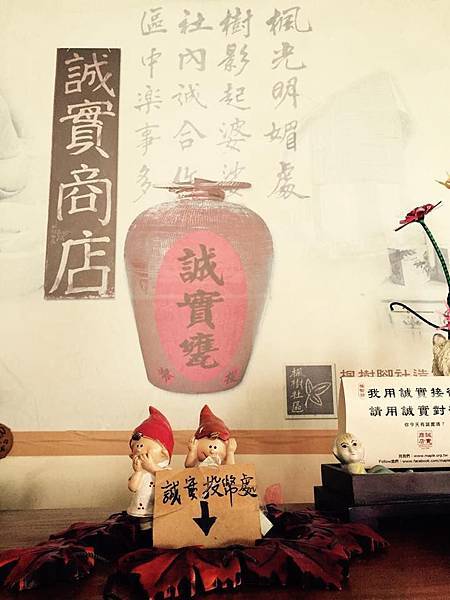 楓光明媚處
樹影起婆娑
社內誠合作
區中楽事多
誠實商店
誠實甕
楓樹社區
楓樹腳社造
我用誠實接
請用誠實對
誠實投幣處